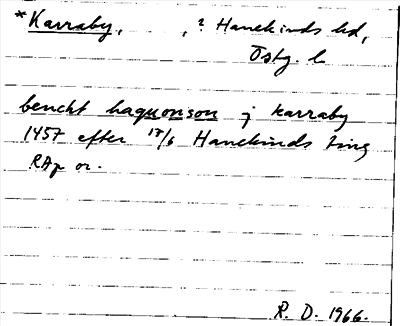 *Karraby, , ? Hanekinds hd,
Östg. l
bencht haquonson j karraby
1457 efter 17/6 Hanekinds ting
RAp or.
R. D. 1966.